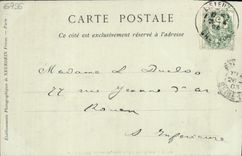 6936
CARTE POSTALE
Ce côté est exclusivement réservé à l'adresse
Madame L Duclos
27 rue Jeanne d'Arc
Rouen
S Inférieure
Etablissements Photographiques de NEURDEIN Frères. — Paris